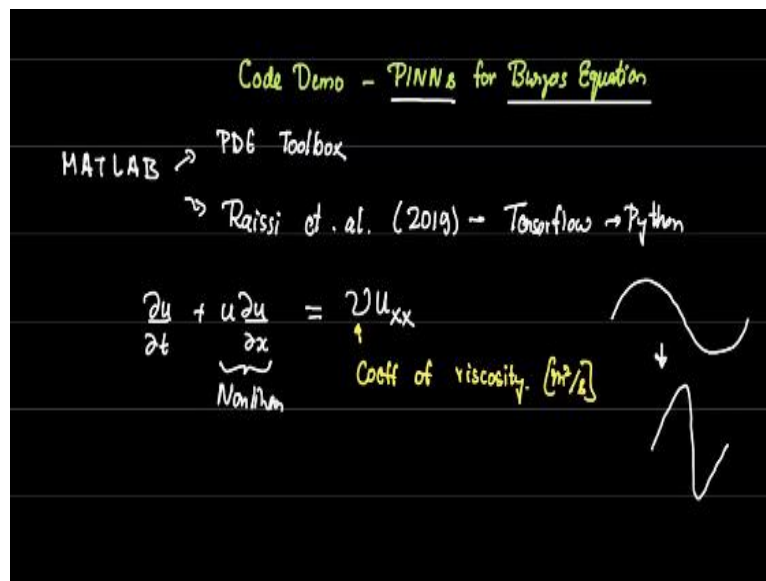 Code Demo – PINNs for Burgers Equation
MATLAB → PDE Toolbox
→ Raissi et. al. (2019) – Tensorflow → Python
∂u/∂t + u ∂u/∂x = νu_xx
Nonlinear
Coeff of viscosity. [m²/s]